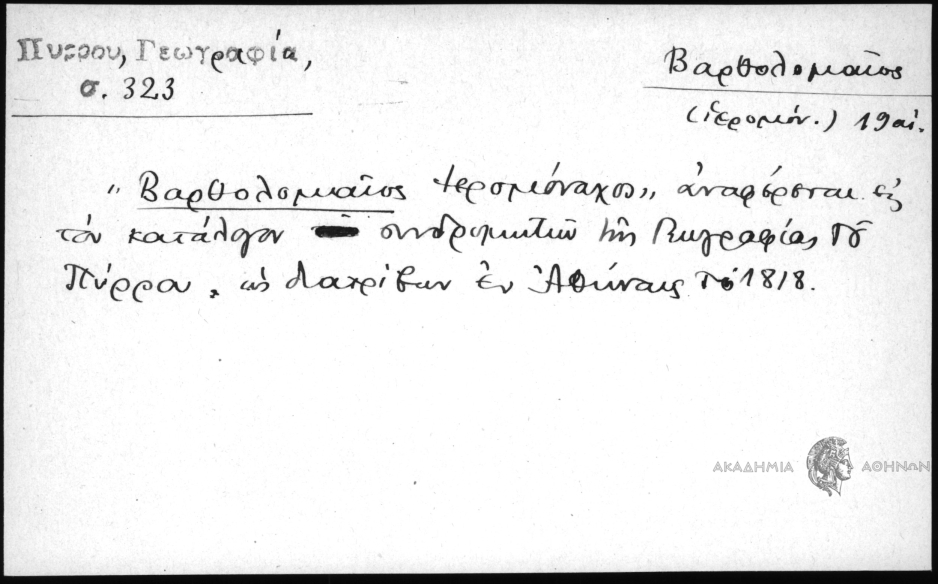 Πύρρου, Γεωγραφία,
σ. 323
Βαρθολομαῖος
(ἱερομόν.) 19 αἰ.
"Βαρθολομαῖος ἱερομόναχος", ἀναφέρεται εἰς
τὸν κατάλογον συνδρομητῶν τῆς Γεωγραφίας τοῦ
Πύρρου, ὡς διατρίβων ἐν Ἀθήναις τὸ 1818.
ΑΚΑΔΗΜΙΑ ΑΘΗΝΩΝ